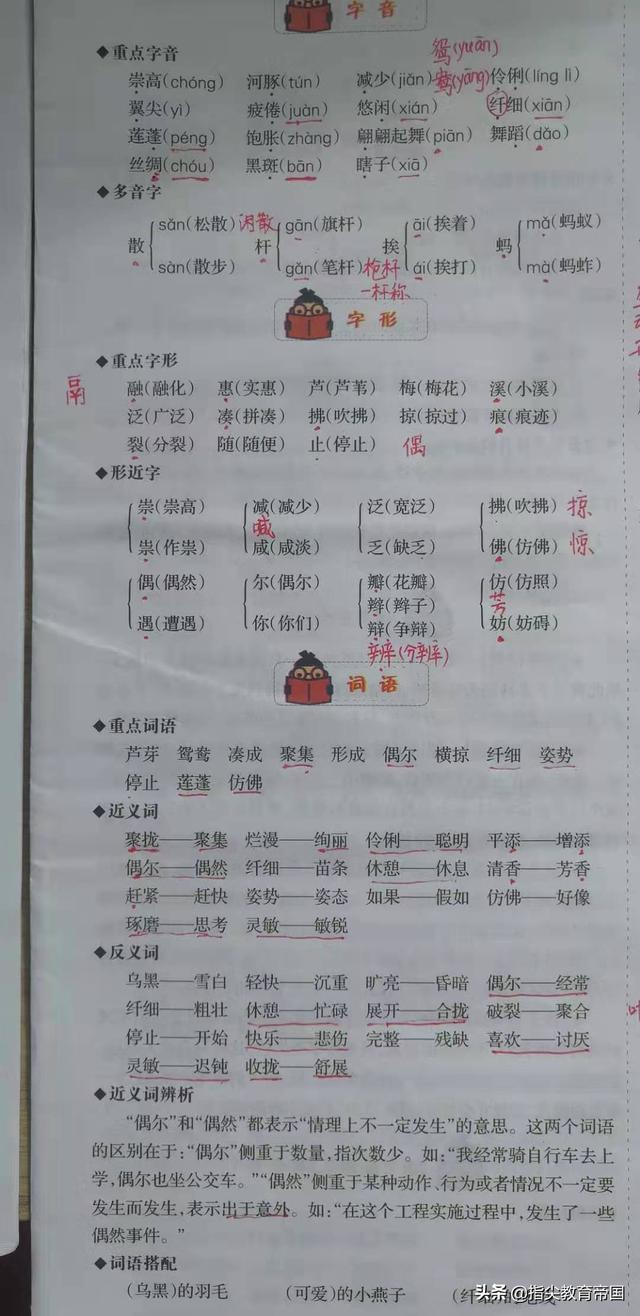 字音
鸳(yuān)
◆重点字音
崇高(chóng) 河豚(tún) 减少(jiǎn) 鸯(yāng) 伶俐(líng lì)
翼尖(yì) 疲倦(juàn) 悠闲(xián) 纤细(xiān)
莲蓬(péng) 饱胀(zhàng) 翩翩起舞(piān) 舞蹈(dǎo)
丝绸(chóu) 黑斑(bān) 瞎子(xiā)
◆多音字
散 sǎn(松散) 闲散 sàn(散步)
杆 gān(旗杆) gǎn(笔杆) 枪杆 一杆称
挨 āi(挨着) ái(挨打)
蚂 mǎ(蚂蚁) mà(蚂蚱)
字形
◆重点字形
鬲 融(融化) 惠(实惠) 芦(芦苇) 梅(梅花) 溪(小溪)
泛(广泛) 凑(拼凑) 拂(吹拂) 掠(掠过) 痕(痕迹)
裂(分裂) 随(随便) 止(停止) 偶
◆形近字
崇(崇高) 减(减少) 泛(宽泛) 拂(吹拂) 掠
喊
祟(作祟) 咸(咸淡) 乏(缺乏) 佛(仿佛) 惊
偶(偶然) 尔(偶尔) 瓣(花瓣) 仿(仿照)
辫(辫子) 芳
遇(遭遇) 你(你们) 辩(争辩) 妨(妨碍)
辨(分辨)
词语
◆重点词语
芦芽 鸳鸯 凑成 聚集 形成 偶尔 横掠 纤细 姿势
停止 莲蓬 仿佛
◆近义词
聚拢——聚集 烂漫——绚丽 伶俐——聪明 平添——增添
偶尔——偶然 纤细——苗条 休憩——休息 清香——芳香
赶紧——赶快 姿势——姿态 如果——假如 仿佛——好像
琢磨——思考 灵敏——敏锐
◆反义词
乌黑——雪白 轻快——沉重 旷亮——昏暗 偶尔——经常
纤细——粗壮 休憩——忙碌 展开——合拢 破裂——聚合
停止——开始 快乐——悲伤 完整——残缺 喜欢——讨厌
灵敏——迟钝 收拢——舒展
◆近义词辨析
“偶尔”和“偶然”都表示“情理上不一定发生”的意思。这两个词语
的区别在于:“偶尔”侧重于数量,指次数少。如:“我经常骑自行车去上
学,偶尔也坐公交车。”“偶然”侧重于某种动作、行为或者情况不一定要
发生而发生,表示出于意外。如:“在这个工程实施过程中,发生了一些
偶然事件。”
◆词语搭配
(乌黑)的羽毛 (可爱)的小燕子 (纤
头条 @指尖教育帝国